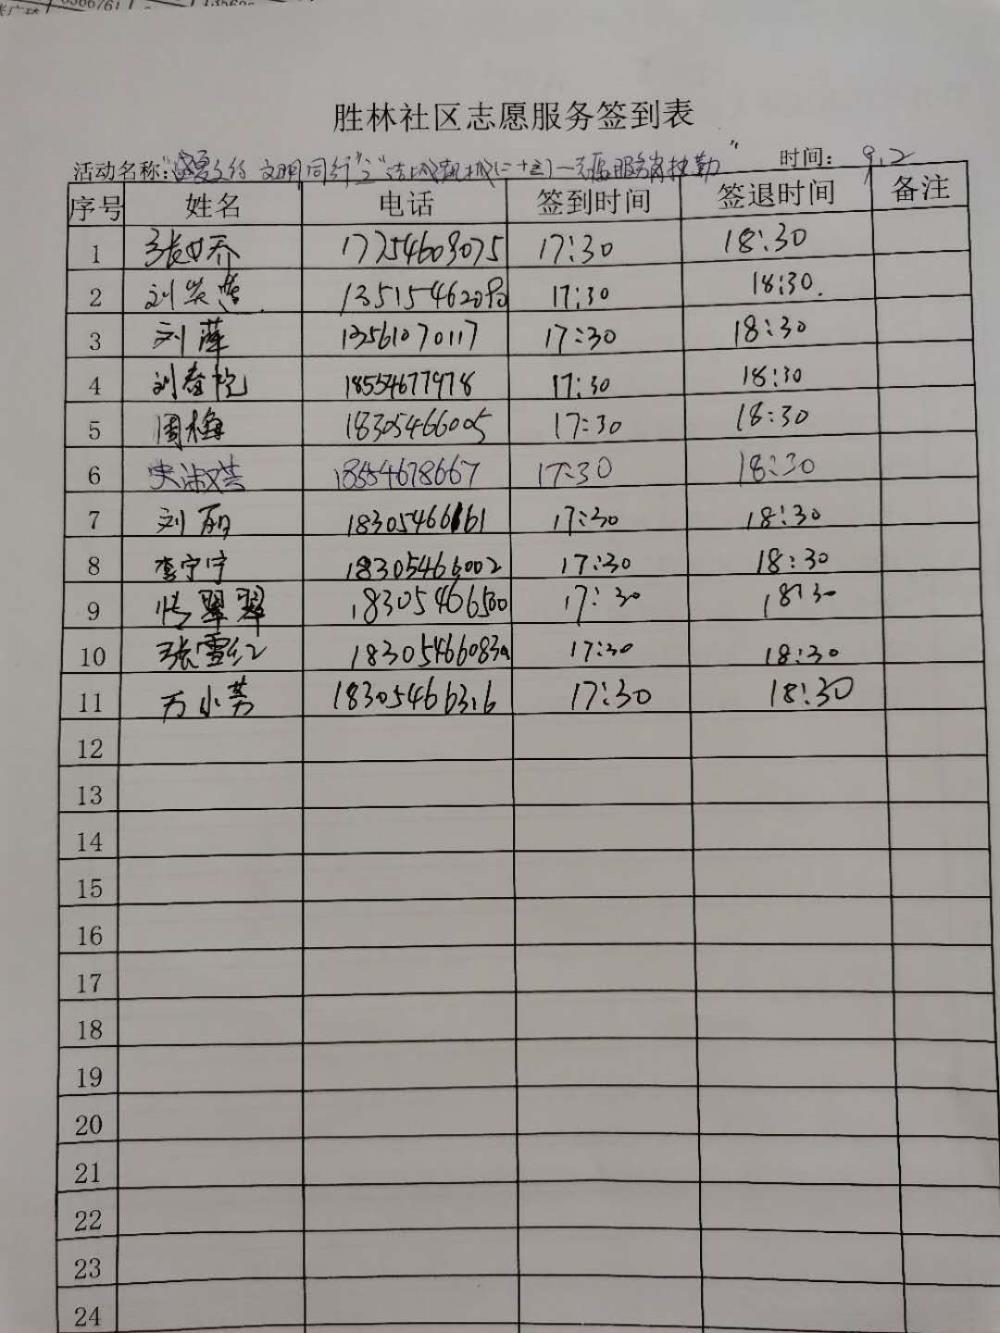 胜林社区志愿服务签到表
活动名称: 文明同行 服务岗执勤" 时间: 9.2
序号 姓名 电话 签到时间 签退时间 备注
1 17254603075 17:30 18:30
2 17:30 18:30.
3 刘萍 13561070117 17:30 18:30
4 18554677978 17:30 18:30
5 周梅 18305466005 17:30 18:30
6 史淑芸 18554678667 17:30 18:30
7 刘丽 18305466161 17:30 18:30
8 李宁宁 18305466002 17:30 18:30
9 翠翠 18305466500 17:30 18:30
10 张雪红 17:30 18:30
11 万小芳 18305466316 17:30 18:30
12
13
14
15
16
17
18
19
20
21
22
23
24